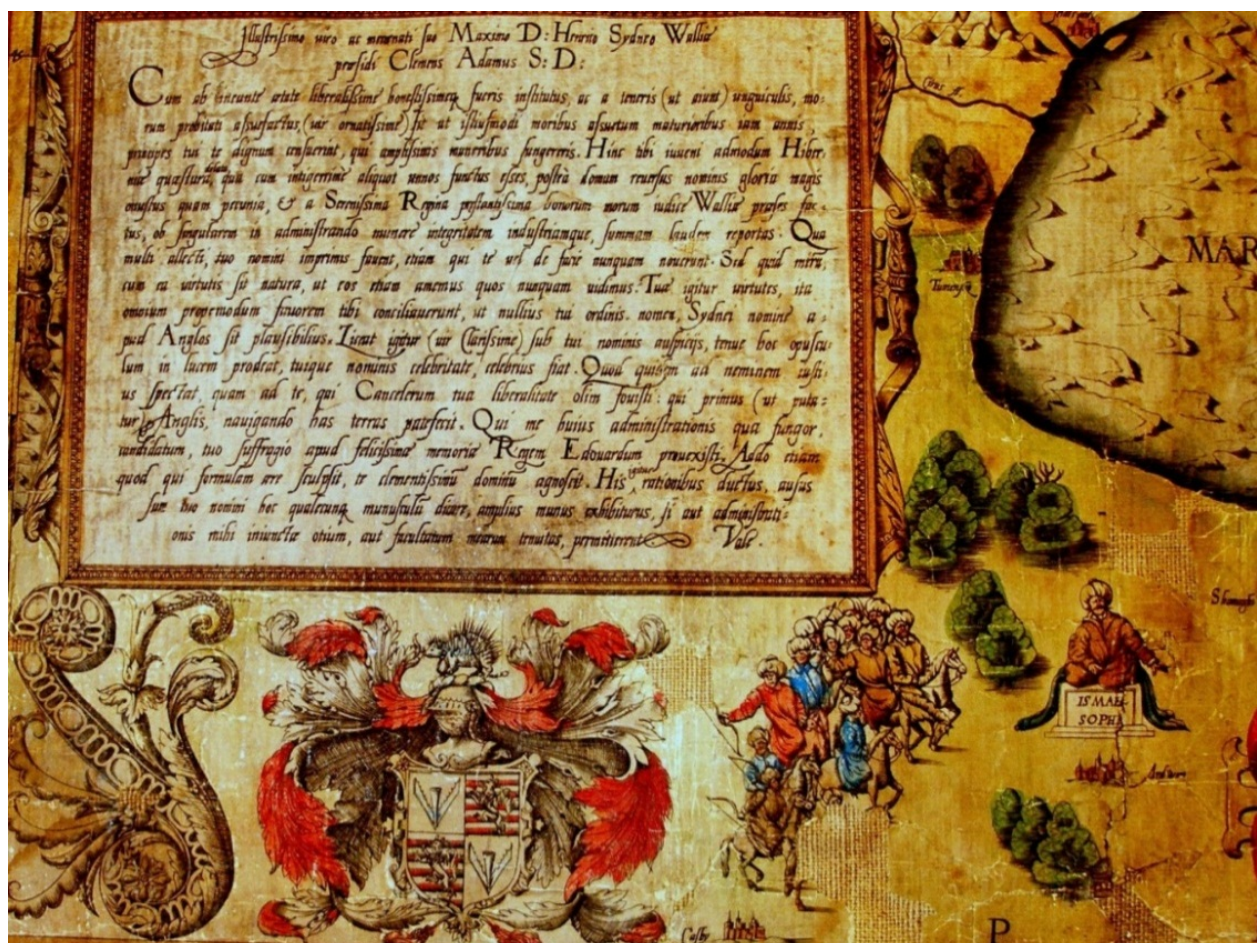 Illustrissimo viro ac mecenati suo Maximo D: Henrico Sydneo Walliæ
præsidi Clemens Adamus S: D:
Cum ab ineunte ætate liberalissime honestissimeq fueris institutus, ac a teneris (ut aiunt) unguiculis, mo:
rum probitati assuefactus, (vir ornatissime) fit ut istiusmodi moribus assuetum maturioribus iam annis,
principes tui te dignum censuerint, qui amplissimis muneribus fungereris. Hinc tibi iuveni admodum Hiber
niæ quæstura, delata qua cum integerrime aliquot annos functus esses, postea domum reversus nominis gloria magis
onustus quam pecunia, & a Serenissima Regina præstantissima bonorum morum iudice Walliæ præses fac:
tus, ob singularem in administrando munere integritatem industriamque, summam laudem reportas. Qua
multi allecti, tuo nomini imprimis favent, etiam qui te vel de facie nunquam noverunt. Sed quid mirū,
cum ea virtutis sit natura, ut eos etiam amemus quos nunquam vidimus. Tuæ igitur virtutes, ita
omnium propemodum favorem tibi conciliaverunt, ut nullius tui ordinis nomen, Sydnei nomine a:
pud Anglos sit plausibilius. Liceat igitur (vir Clarissime) sub tui nominis auspicijs, tenue hoc opuscu:
lum in lucem prodeat, tuique nominis celebritate, celebrius fiat. Quod quidem ad neminem iusti:
us spectat, quam ad te, qui Cancelerum tua liberalitate olim fovisti: qui primus (ut puta:
tur) Anglis, navigando has terras patefecit. Qui me huius administrationis qua fungor,
candidatum, tuo suffragio apud felicissimæ memoriæ Regem Edouardum provexisti. Addo etiam
quod qui formulam ære sculpsit, te clementissimū dominū agnoscit. His igitur rationibus ductus, ausus
sum tuo nomini hoc qualecunq munusculū dicare, amplius munus exhibiturus, si aut administrati:
onis mihi iniunctæ otium, aut facultatum mearum tenuitas, permitterent. Vale.
MAR
ISMAEL
SOPHI
P